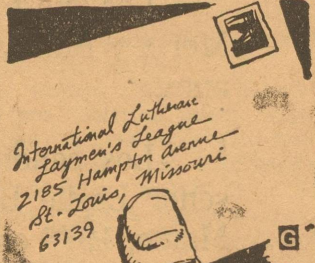 International Lutheran
Laymen's League
2185 Hampton Avenue
St. Louis, Missouri
63139
G